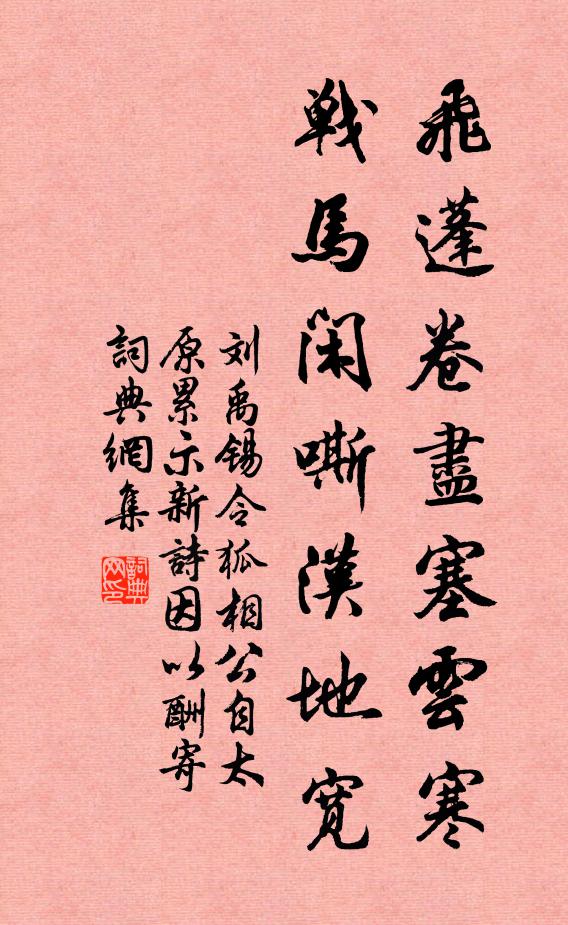 飛蓬卷盡塞雲寒
戰馬閑嘶漢地寬
刘禹錫令狐相公自太
原累示新詩因以酬寄
詞典網集
詞典
网印